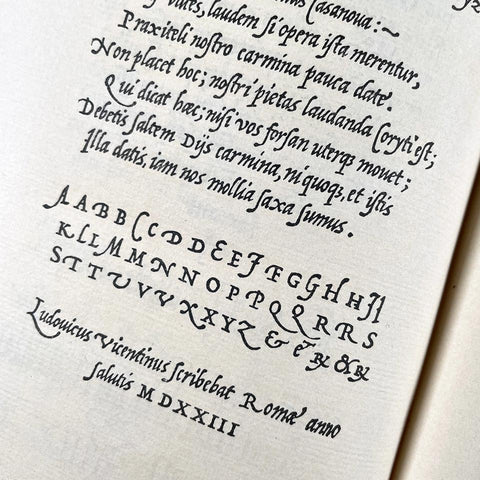 uates, laudem si opera ista merentur,
Praxiteli nostro carmina pauca date.
Non placet hoc; nostri pietas laudanda Coryti est;
Qui dicat hæc; nisi vos forsan uterqꝫ mouet;
Debetis saltem Dijs carmina, ni quoqꝫ, et istis
Illa datis, iam nos mollia saxa sumus.
A A B B C C D D E E F F G G H H I J
K L L M M N N O P P Q Q R R S
S T T U V V X X Y Z & &
Ludouicus Vicentinus scribebat Romæ anno
salutis MDXXIII